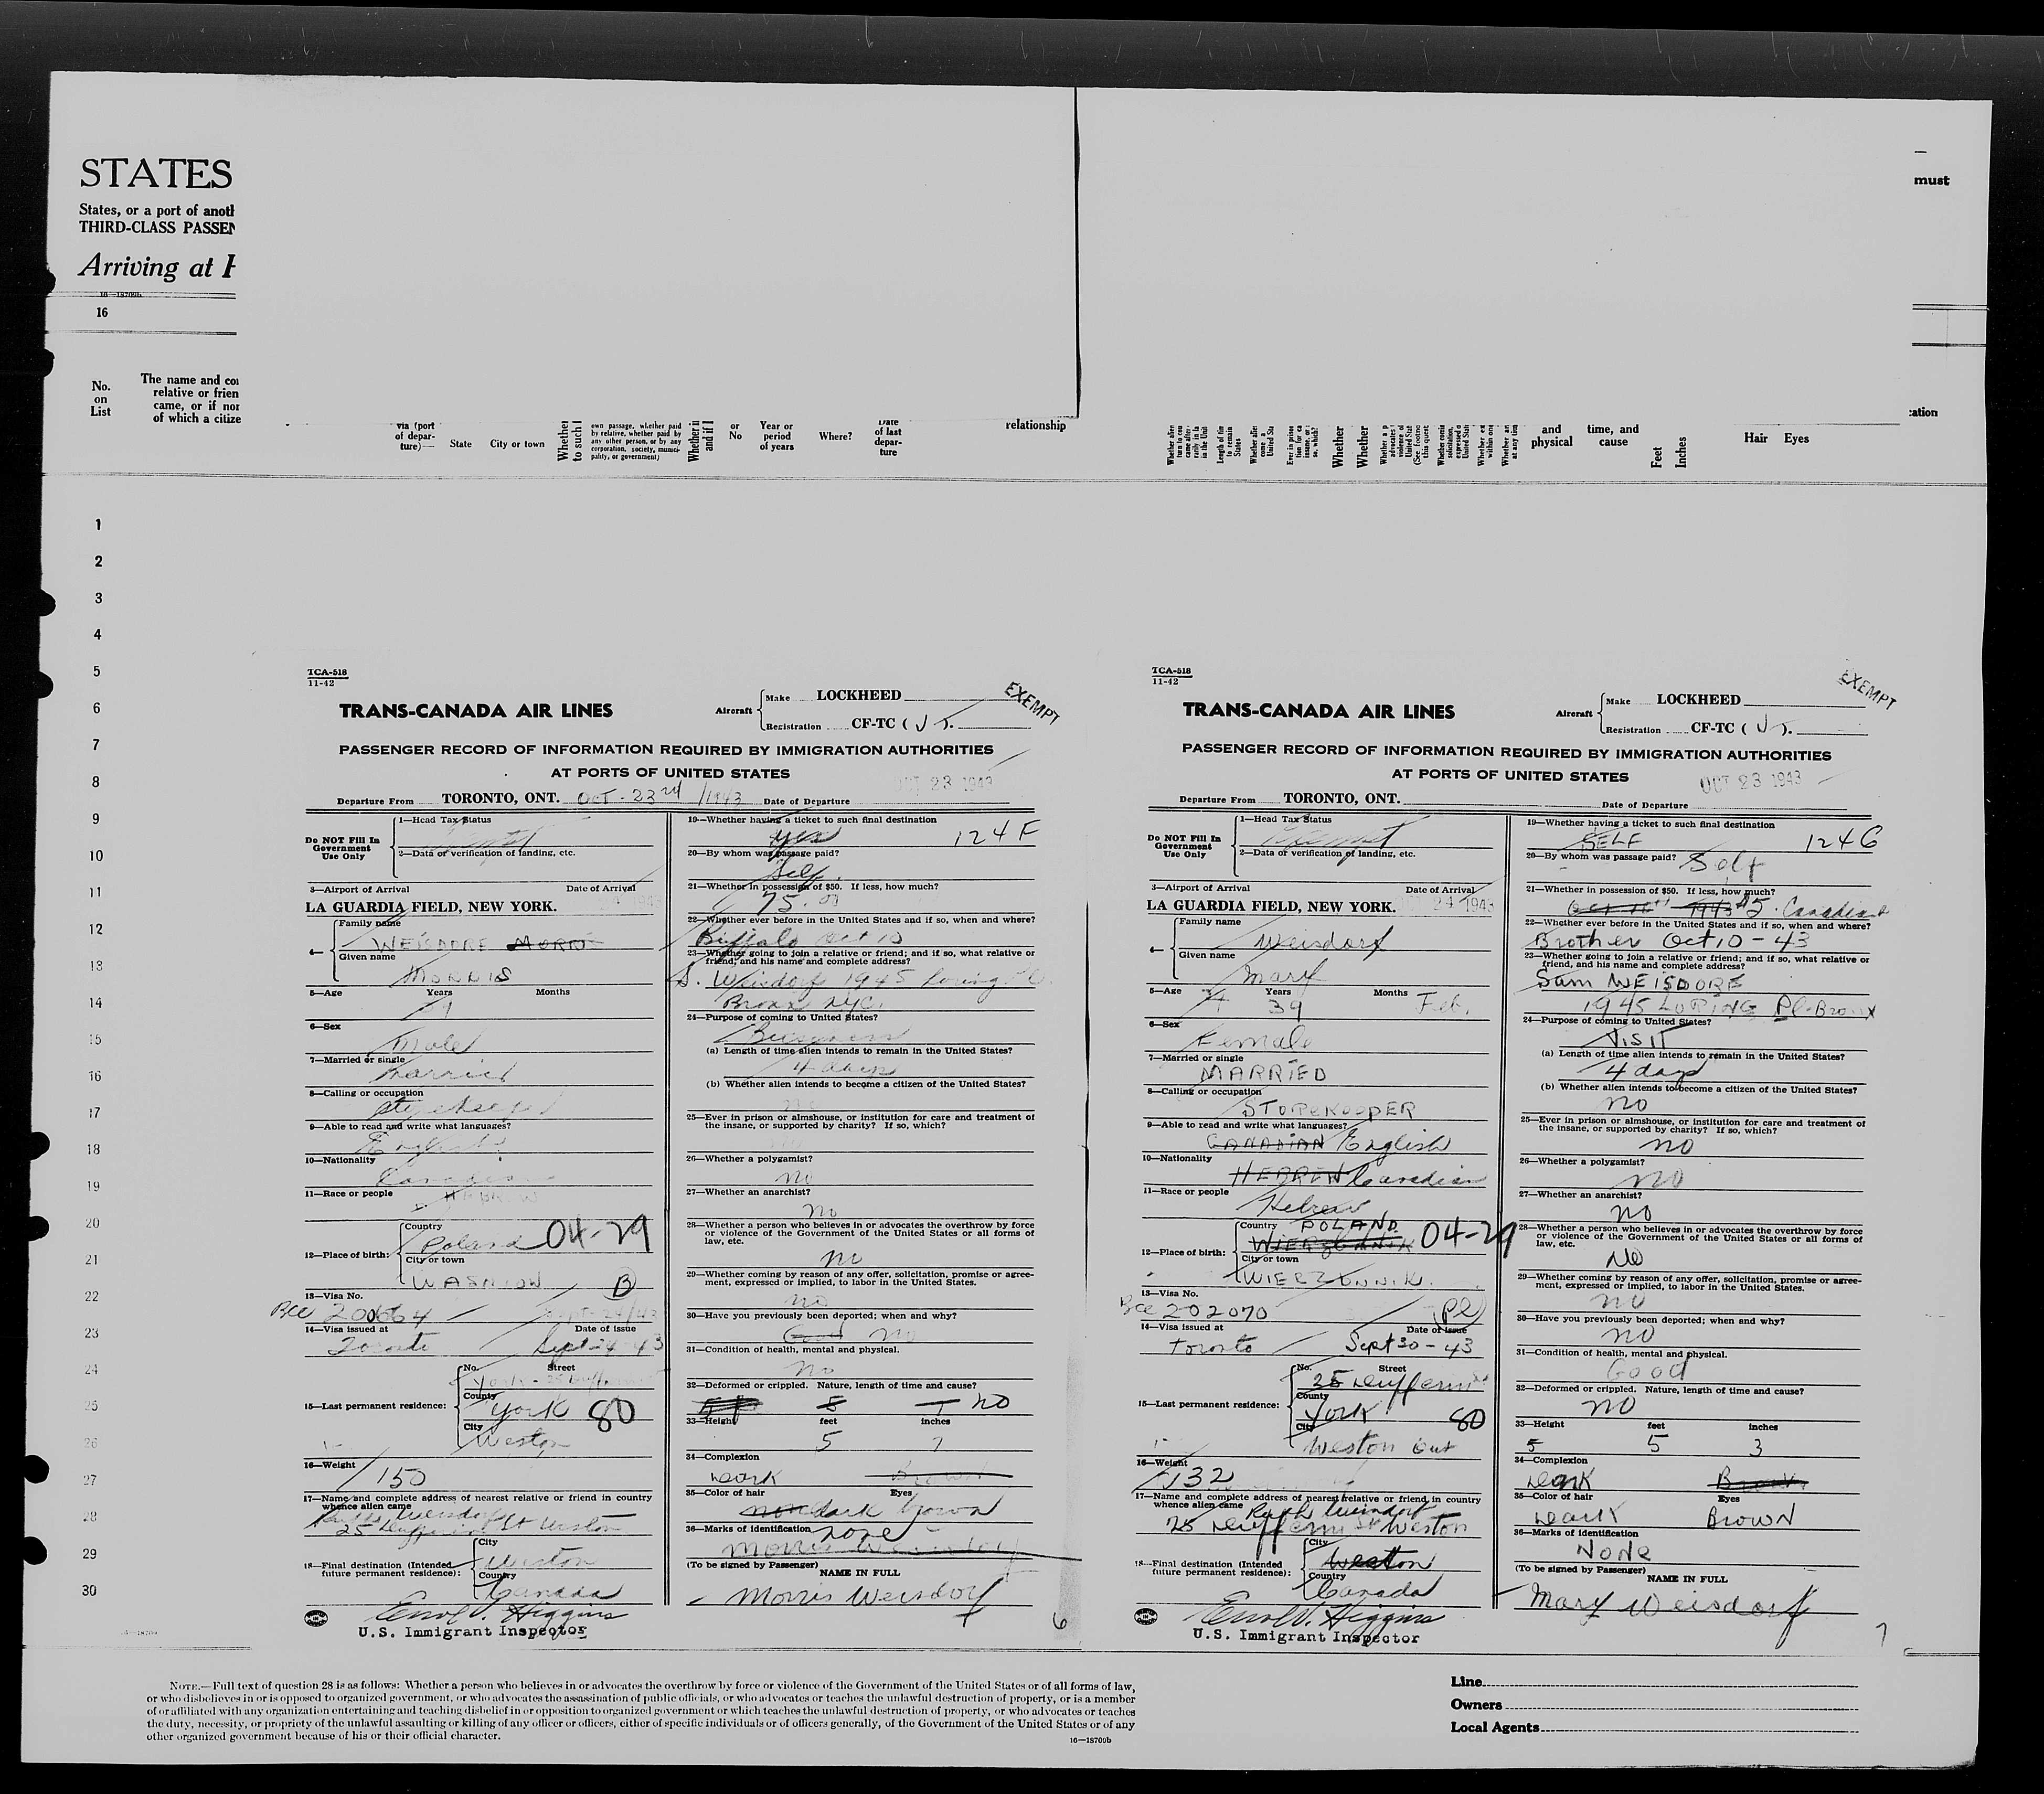 STATES
States, or a port of anoth
THIRD-CLASS PASSEN
Arriving at H
16—18709b
16
must
No.
on
List
The name and co
relative or frien
came, or if nor
of which a citize
via (port
of depar-
ture)—
State
City or town
Whether
to such
own passage, whether paid
by relative, whether paid by
any other person, or by any
corporation, society, munici-
pality, or government)
Whether
and if
or
No
Year or
period
of years
Where?
Date
of last
depar-
ture
relationship
Whether
Whether
and
physical
time, and
cause
Feet
Inches
Hair Eyes
cation
1
2
3
4
5
6
7
8
9
10
11
12
13
14
15
16
17
18
19
20
21
22
23
24
25
26
27
28
29
30
TCA-518
11-42
TRANS-CANADA AIR LINES
Aircraft
Make LOCKHEED
Registration CF-TC (VJ).
EXEMPT
PASSENGER RECORD OF INFORMATION REQUIRED BY IMMIGRATION AUTHORITIES
AT PORTS OF UNITED STATES
OCT 23 1943
Departure From TORONTO, ONT. Oct-23rd /1943 Date of Departure
Do NOT Fill In
Government
Use Only
1—Head Tax Status
2—Data or verification of landing, etc.
3—Airport of Arrival Date of Arrival
LA GUARDIA FIELD, NEW YORK.
4—
Family name
WEISDORF MORRIS
Given name
MORRIS
5—Age Years Months
6—Sex
Male
7—Married or single
Married
8—Calling or occupation
Storekeeper
9—Able to read and write what languages?
English
10—Nationality
Canadian
11—Race or people
HEBREW
12—Place of birth:
Country
Poland 04-29
City or town
B
13—Visa No.
14—Visa issued at Date of issue
Toronto
15—Last permanent residence:
No. Street
County
York 80
City
Weston
16—Weight
150
17—Name and complete address of nearest relative or friend in country
whence alien came
Weisdorf
25 Dufferin St Weston
18—Final destination (Intended
future permanent residence):
City
Weston
Country
Canada
Errol V. Higgins
U.S. Immigrant Inspector
19—Whether having a ticket to such final destination
yes 124 F
20—By whom was passage paid?
Self
21—Whether in possession of $50. If less, how much?
75.00
22—Whether ever before in the United States and if so, when and where?
Buffalo Oct 10
23—Whether going to join a relative or friend; and if so, what relative or
friend; and his name and complete address?
S. Weisdorf 1945 Loring Pl.
Bronx NYC.
24—Purpose of coming to United States?
Business
(a) Length of time alien intends to remain in the United States?
4 days
(b) Whether alien intends to become a citizen of the United States?
no
25—Ever in prison or almshouse, or institution for care and treatment of
the insane, or supported by charity? If so, which?
no
26—Whether a polygamist?
no
27—Whether an anarchist?
no
28—Whether a person who believes in or advocates the overthrow by force
or violence of the Government of the United States or all forms of
law, etc.
no
29—Whether coming by reason of any offer, solicitation, promise or agree-
ment, expressed or implied, to labor in the United States.
no
30—Have you previously been deported; when and why?
Good no
31—Condition of health, mental and physical.
no
32—Deformed or crippled. Nature, length of time and cause?
no
33—Height feet inches
5 7
34—Complexion
Dark Brown
35—Color of hair Eyes
dark brown
36—Marks of identification none
Morris Weisdorf
(To be signed by Passenger) NAME IN FULL
Morris Weisdorf
6
TCA-518
11-42
TRANS-CANADA AIR LINES
Aircraft
Make LOCKHEED
Registration CF-TC (VJ).
EXEMPT
PASSENGER RECORD OF INFORMATION REQUIRED BY IMMIGRATION AUTHORITIES
AT PORTS OF UNITED STATES
OCT 23 1943
Departure From TORONTO, ONT. Date of Departure
Do NOT Fill In
Government
Use Only
1—Head Tax Status
2—Data or verification of landing, etc.
3—Airport of Arrival Date of Arrival
LA GUARDIA FIELD, NEW YORK. 24 1943
4—
Family name
Weisdorf
Given name
Mary
5—Age Years Months
39 Feb.
6—Sex
Female
7—Married or single
MARRIED
8—Calling or occupation
STOREKEEPER
9—Able to read and write what languages?
CANADIAN English
10—Nationality
HEBREW Canadian
11—Race or people
Hebrew
12—Place of birth:
Country POLAND
WIERZBNIK 04-29
City or town
WIERZBNNIK.
13—Visa No.
Bcc 202070 Pl
14—Visa issued at Date of issue
Toronto Sept 30-43
15—Last permanent residence:
No. Street
25 Dufferin
County
York 80
City
Weston Ont
16—Weight
132
17—Name and complete address of nearest relative or friend in country
whence alien came Ruth Weisdorf
25 Dufferin St Weston
18—Final destination (Intended
future permanent residence):
City
Weston
Country
Canada
Errol V. Higgins
U.S. Immigrant Inspector
19—Whether having a ticket to such final destination
SELF 124G
20—By whom was passage paid? Self
21—Whether in possession of $50. If less, how much?
Oct 10th 1943 $5. Canadian
22—Whether ever before in the United States and if so, when and where?
Brother Oct 10-43
23—Whether going to join a relative or friend; and if so, what relative or
friend, and his name and complete address?
Sam WEISDORF
1945 LORING Pl. Bronx
24—Purpose of coming to United States?
VISIT
(a) Length of time alien intends to remain in the United States?
4 days
(b) Whether alien intends to become a citizen of the United States?
no
25—Ever in prison or almshouse, or institution for care and treatment of
the insane, or supported by charity? If so, which?
no
26—Whether a polygamist?
no
27—Whether an anarchist?
no
28—Whether a person who believes in or advocates the overthrow by force
or violence of the Government of the United States or all forms of
law, etc.
No
29—Whether coming by reason of any offer, solicitation, promise or agree-
ment, expressed or implied, to labor in the United States.
no
30—Have you previously been deported; when and why?
no
31—Condition of health, mental and physical.
Good
32—Deformed or crippled. Nature, length of time and cause?
no
33—Height feet inches
5 5 3
34—Complexion
Dark Brown
35—Color of hair Eyes
Dark BROWN
36—Marks of identification
None
(To be signed by Passenger) NAME IN FULL
Mary Weisdorf
7
NOTE.—Full text of question 28 is as follows: Whether a person who believes in or advocates the overthrow by force or violence of the Government of the United States or of all forms of law,
or who disbelieves in or is opposed to organized government, or who advocates the assassination of public officials, or who advocates or teaches the unlawful destruction of property, or is a member
of or affiliated with any organization entertaining and teaching disbelief in or opposition to organized government or which teaches the unlawful destruction of property, or who advocates or teaches
the duty, necessity, or propriety of the unlawful assaulting or killing of any officer or officers, either of specific individuals or of officers generally, of the Government of the United States or of any
other organized government because of his or their official character.
16—18709b
Line
Owners
Local Agents